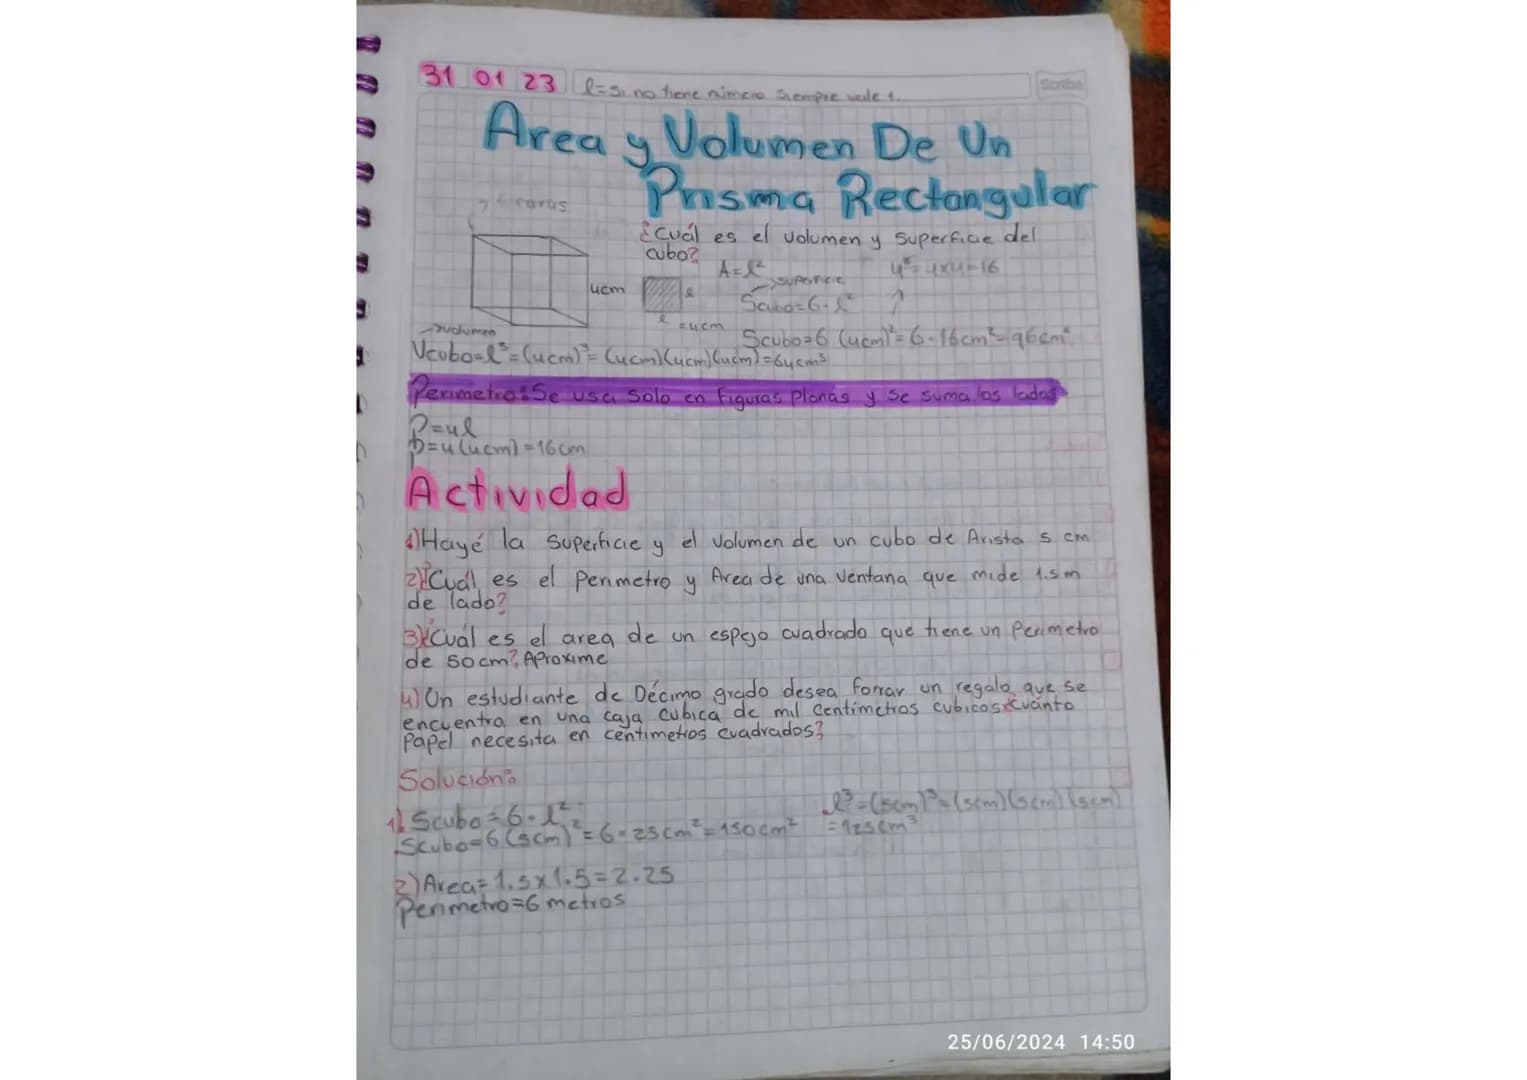 31 01 23 l=si no tiene número siempre vale 1.
Scribe
Area y Volumen De Un
Prisma Rectangular
6 caras
¿Cuál es el volumen y superficie del
cubo?
A=l² 4²=4x4=16
4cm l →superficie
Scubo=6·l²
l =4cm
→volumen
Scubo=6 (4cm)²=6·16cm²=96cm²
Vcubo=l³=(4cm)³=(4cm)(4cm)(4cm)=64cm³
Perimetro:Se usa solo en figuras planas y se suma los lados
P=4l
p=4(4cm)=16cm
Actividad
1)Hayé la superficie y el volumen de un cubo de Arista 5 cm
2)¿Cuál es el Perimetro y Area de una ventana que mide 1.5m
de lado?
3)¿Cuál es el area de un espejo cuadrado que tiene un Perimetro
de 50cm? Aproxime
4)Un estudiante de Décimo grado desea forrar un regalo que se
encuentra en una caja cubica de mil centimetros cubicos ¿cuánto
Papel necesita en centimetros cuadrados?
Solución:
1) Scubo=6·l² l³=(5cm)³=(5cm)(5cm)(5cm)
Scubo=6(5cm)²=6·25cm²=150cm² =125cm³
2)Area=1.5x1.5=2.25
Perimetro=6 metros
25/06/2024 14:50